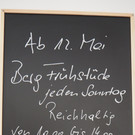 Ab 12. Mai
Berg Frühstücke
jeden Sonntag
Reichhaltig
von 10.00 bis 14.00